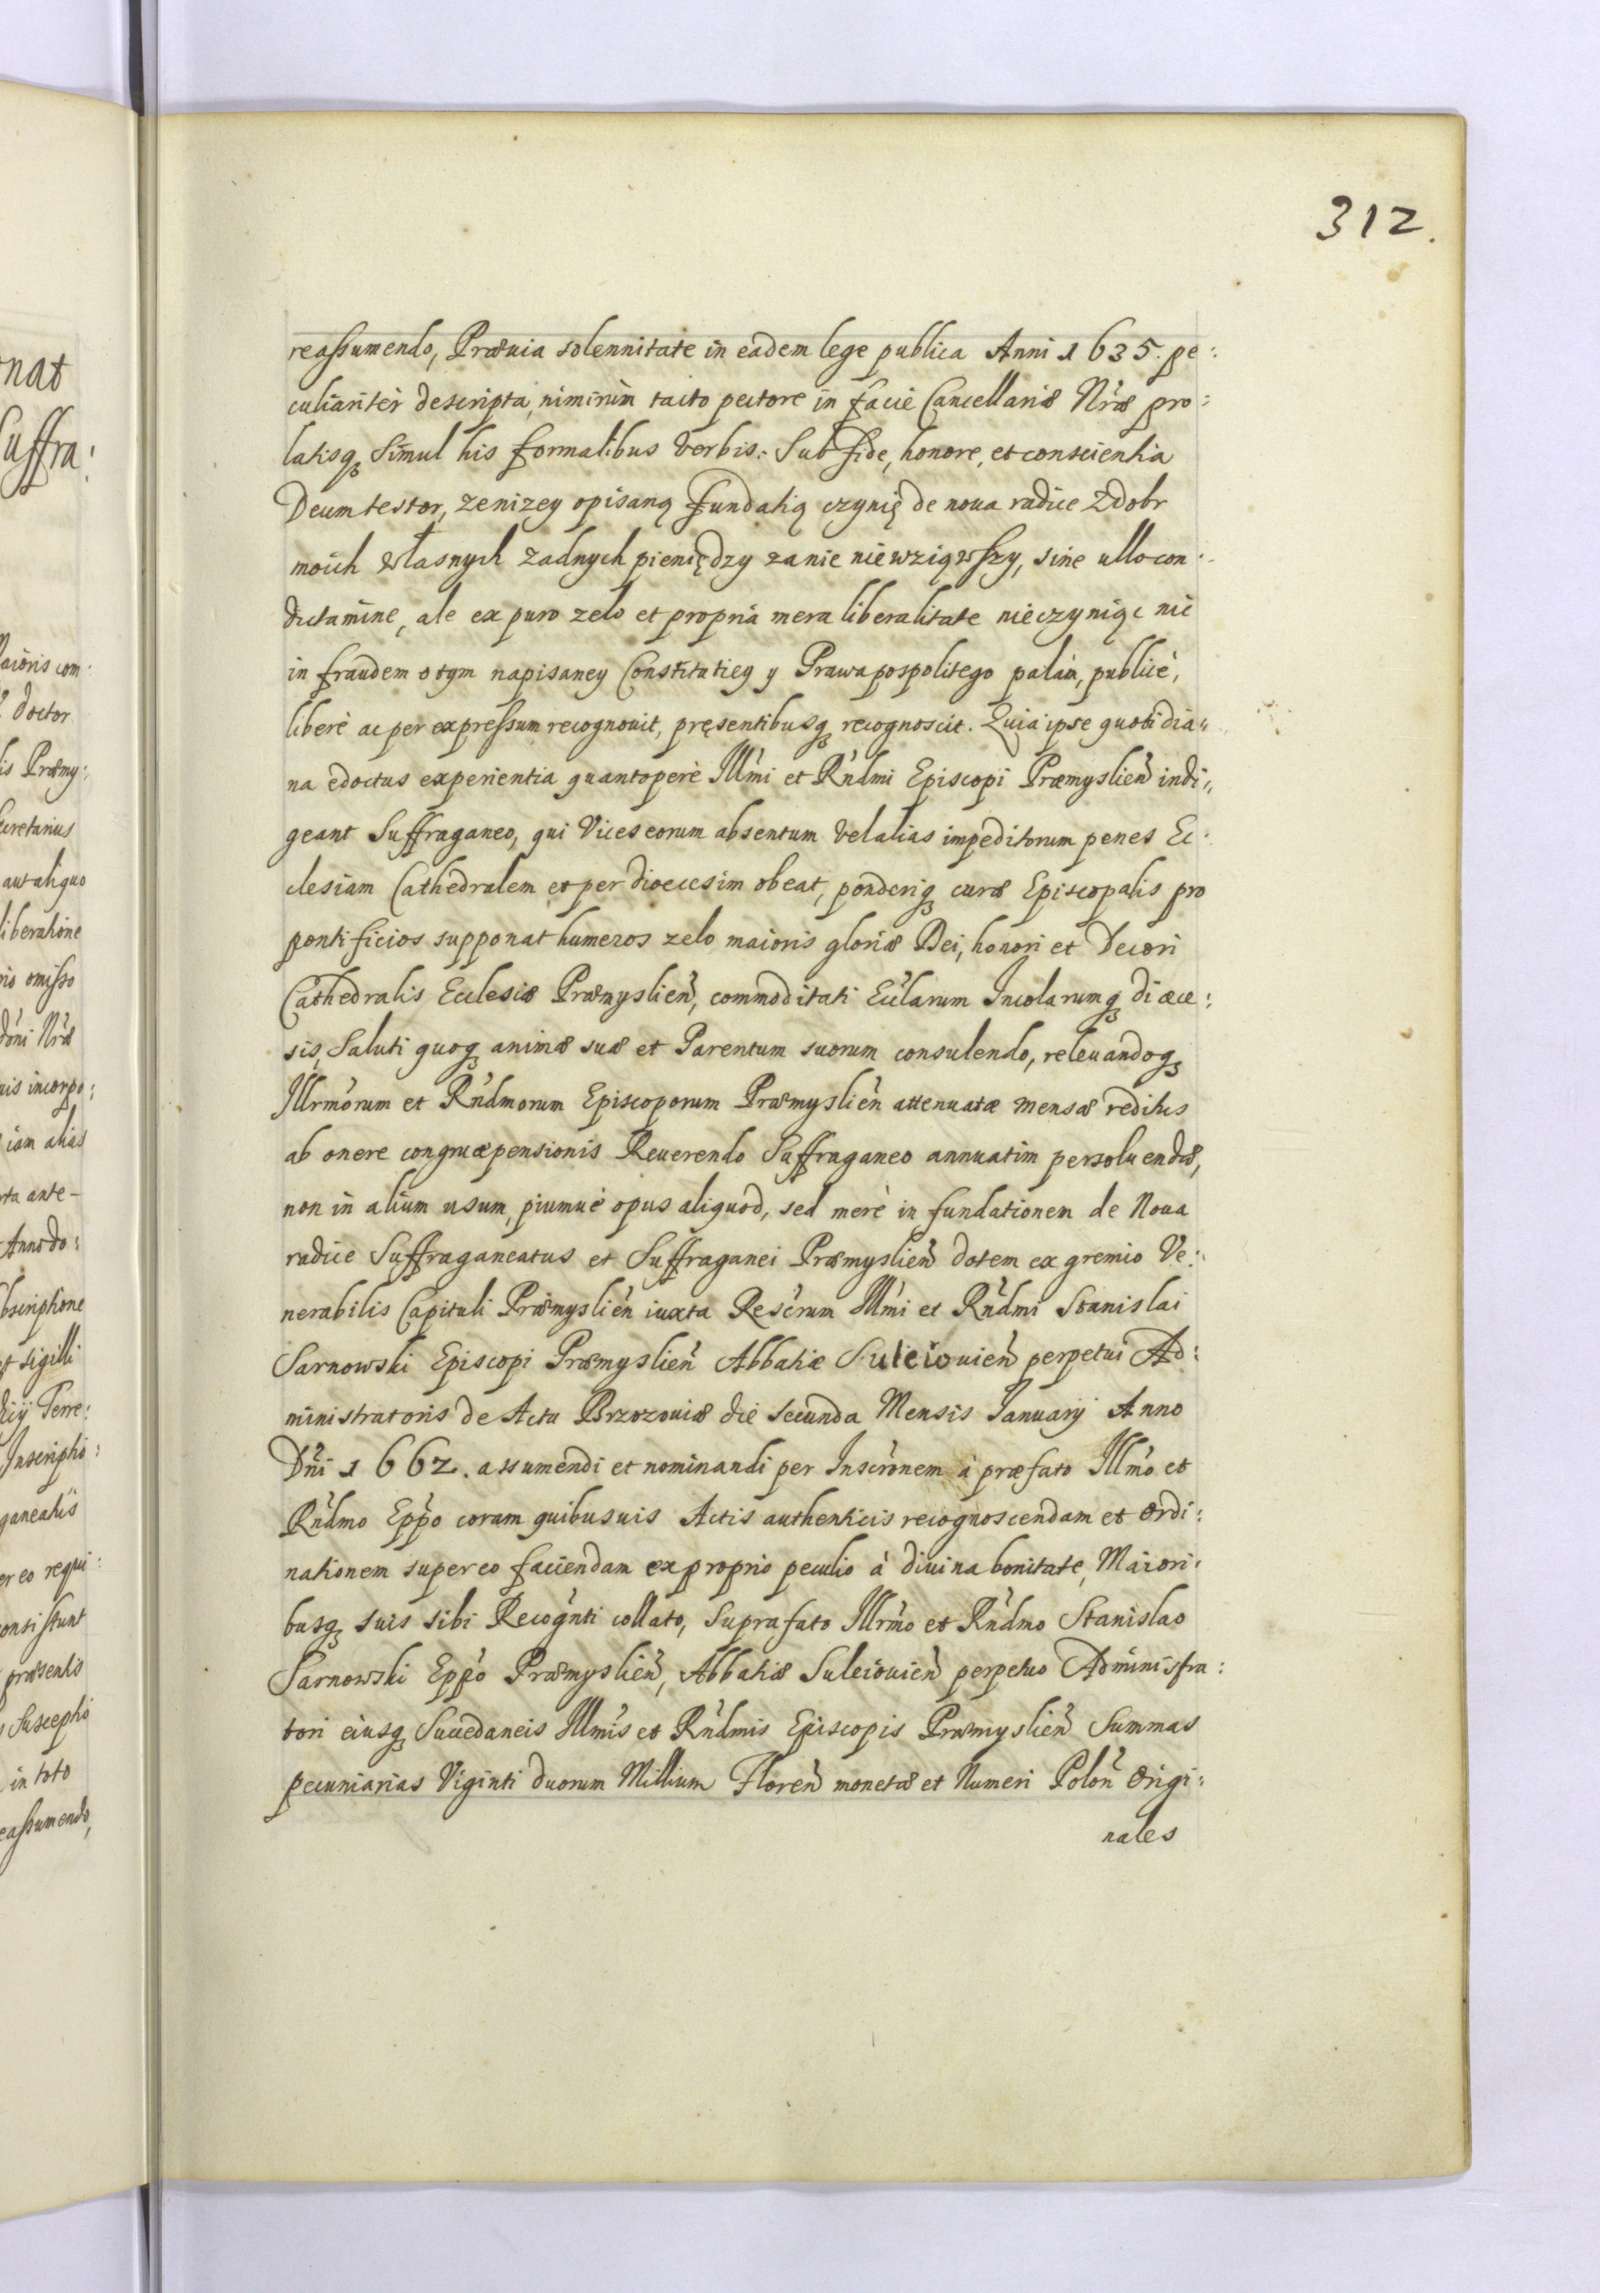 312.
reassumendo, Præuia solennitate in eadem lege publica Anni 1635. pe:
culiaritèr descripta, nimirùm tacto pectore in facie Cancellariæ Nr̃æ pro:
latisq3 Simul his formalibus verbis: Sub fide, honore, et conscientia
Deum testor, ze nizey opisaną Fundatią czynię de noua radice Zdobr
moich własnych zadnych pieniędzy za nie niewziąwszy, sine ullo con:
dictamine, ale ex puro zelo et propria mera liberalitate nieczyniąc nic
in fraudem o tym napisaney Constitutiey y Prawa pospolitego palàm, publicè,
liberè ac per expressum recognouit, pręsentibusq3 recognoscit. Quia ipse quotidia:
na edoctus experientia quantoperè Illm̃i et Rñdmi Episcopi Præmyslień indi:
geant Suffraganeo, qui Vices eorum absentum vel alias impeditorum penes Ec:
clesiam Cathedralem et per dioecesim obeat, ponderiq3 curæ Episcopalis pro
pontificios supponat humeros zelo maioris gloriæ Dei, honori et Decori
Cathedralis Ecclesiæ Præmyslień, commoditati Ecc̃larum Incolarumq3 diæce:
sis, Saluti quoq3 animæ suæ et Parentum suorum consulendo, releuandoq3
Illrm̃orum et Rñdmorum Episcoporum Præmyslień attenuatæ mensæ reditus
ab onere congruæ pensionis Reuerendo Suffraganeo annuatim persoluendæ,
non in alium usum, piumuè opus aliquod, sed merè in fundationem de Noua
radice Suffraganeatus et Suffraganei Præmyslień dotem ex gremio Ve:
nerabilis Capituli Præmyslień iuxta Rescr̃um Illm̃i et Rñdmi Stanislai
Sarnowski Episcopi Præmyslień Abbatiæ Suleiouień perpetui Ad:
ministratoris de Actu Brzozouiæ die secunda Mensis Ianuarij Anno
Dñi 1662. assumendi et nominandi per Inscr̃onem à præfato Illm̃o et
Rñdmo Epp̃o coram quibusuis Actis authenticis recognoscendam et ordi:
nationem super eo faciendam ex proprio peculio à diuina bonitate, Maiori:
busq3 suis sibi Recogñti collato, Suprafato Illrm̃o et Rñdmo Stanislao
Sarnowski Epp̃o Præmyslień, Abbatiæ Suleiouień perpetuo Administra:
tori eiusq3 Succedaneis Illm̃is et Rñdmis Episcopis Præmyslień Summas
pecuniarias Viginti duorum Millium Floreń monetæ et Numeri Poloń Origi:
nales